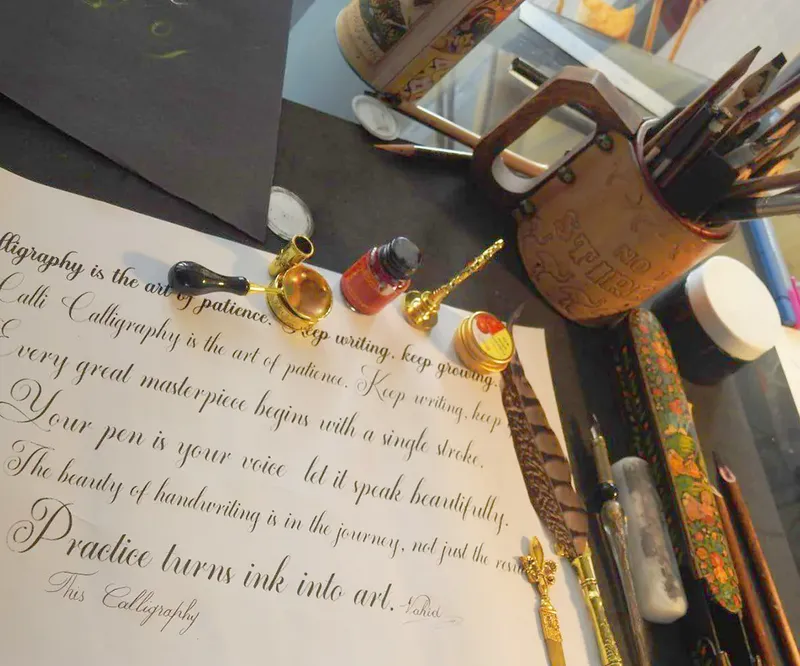 lligraphy is the art of patience. Keep writing, keep growing.
Calli Calligraphy is the art of patience. Keep writing, keep
Every great masterpiece begins with a single stroke.
Your pen is your voice let it speak beautifully.
The beauty of handwriting is in the journey, not just the resu
Practice turns ink into art. Vahid
This Calligraphy